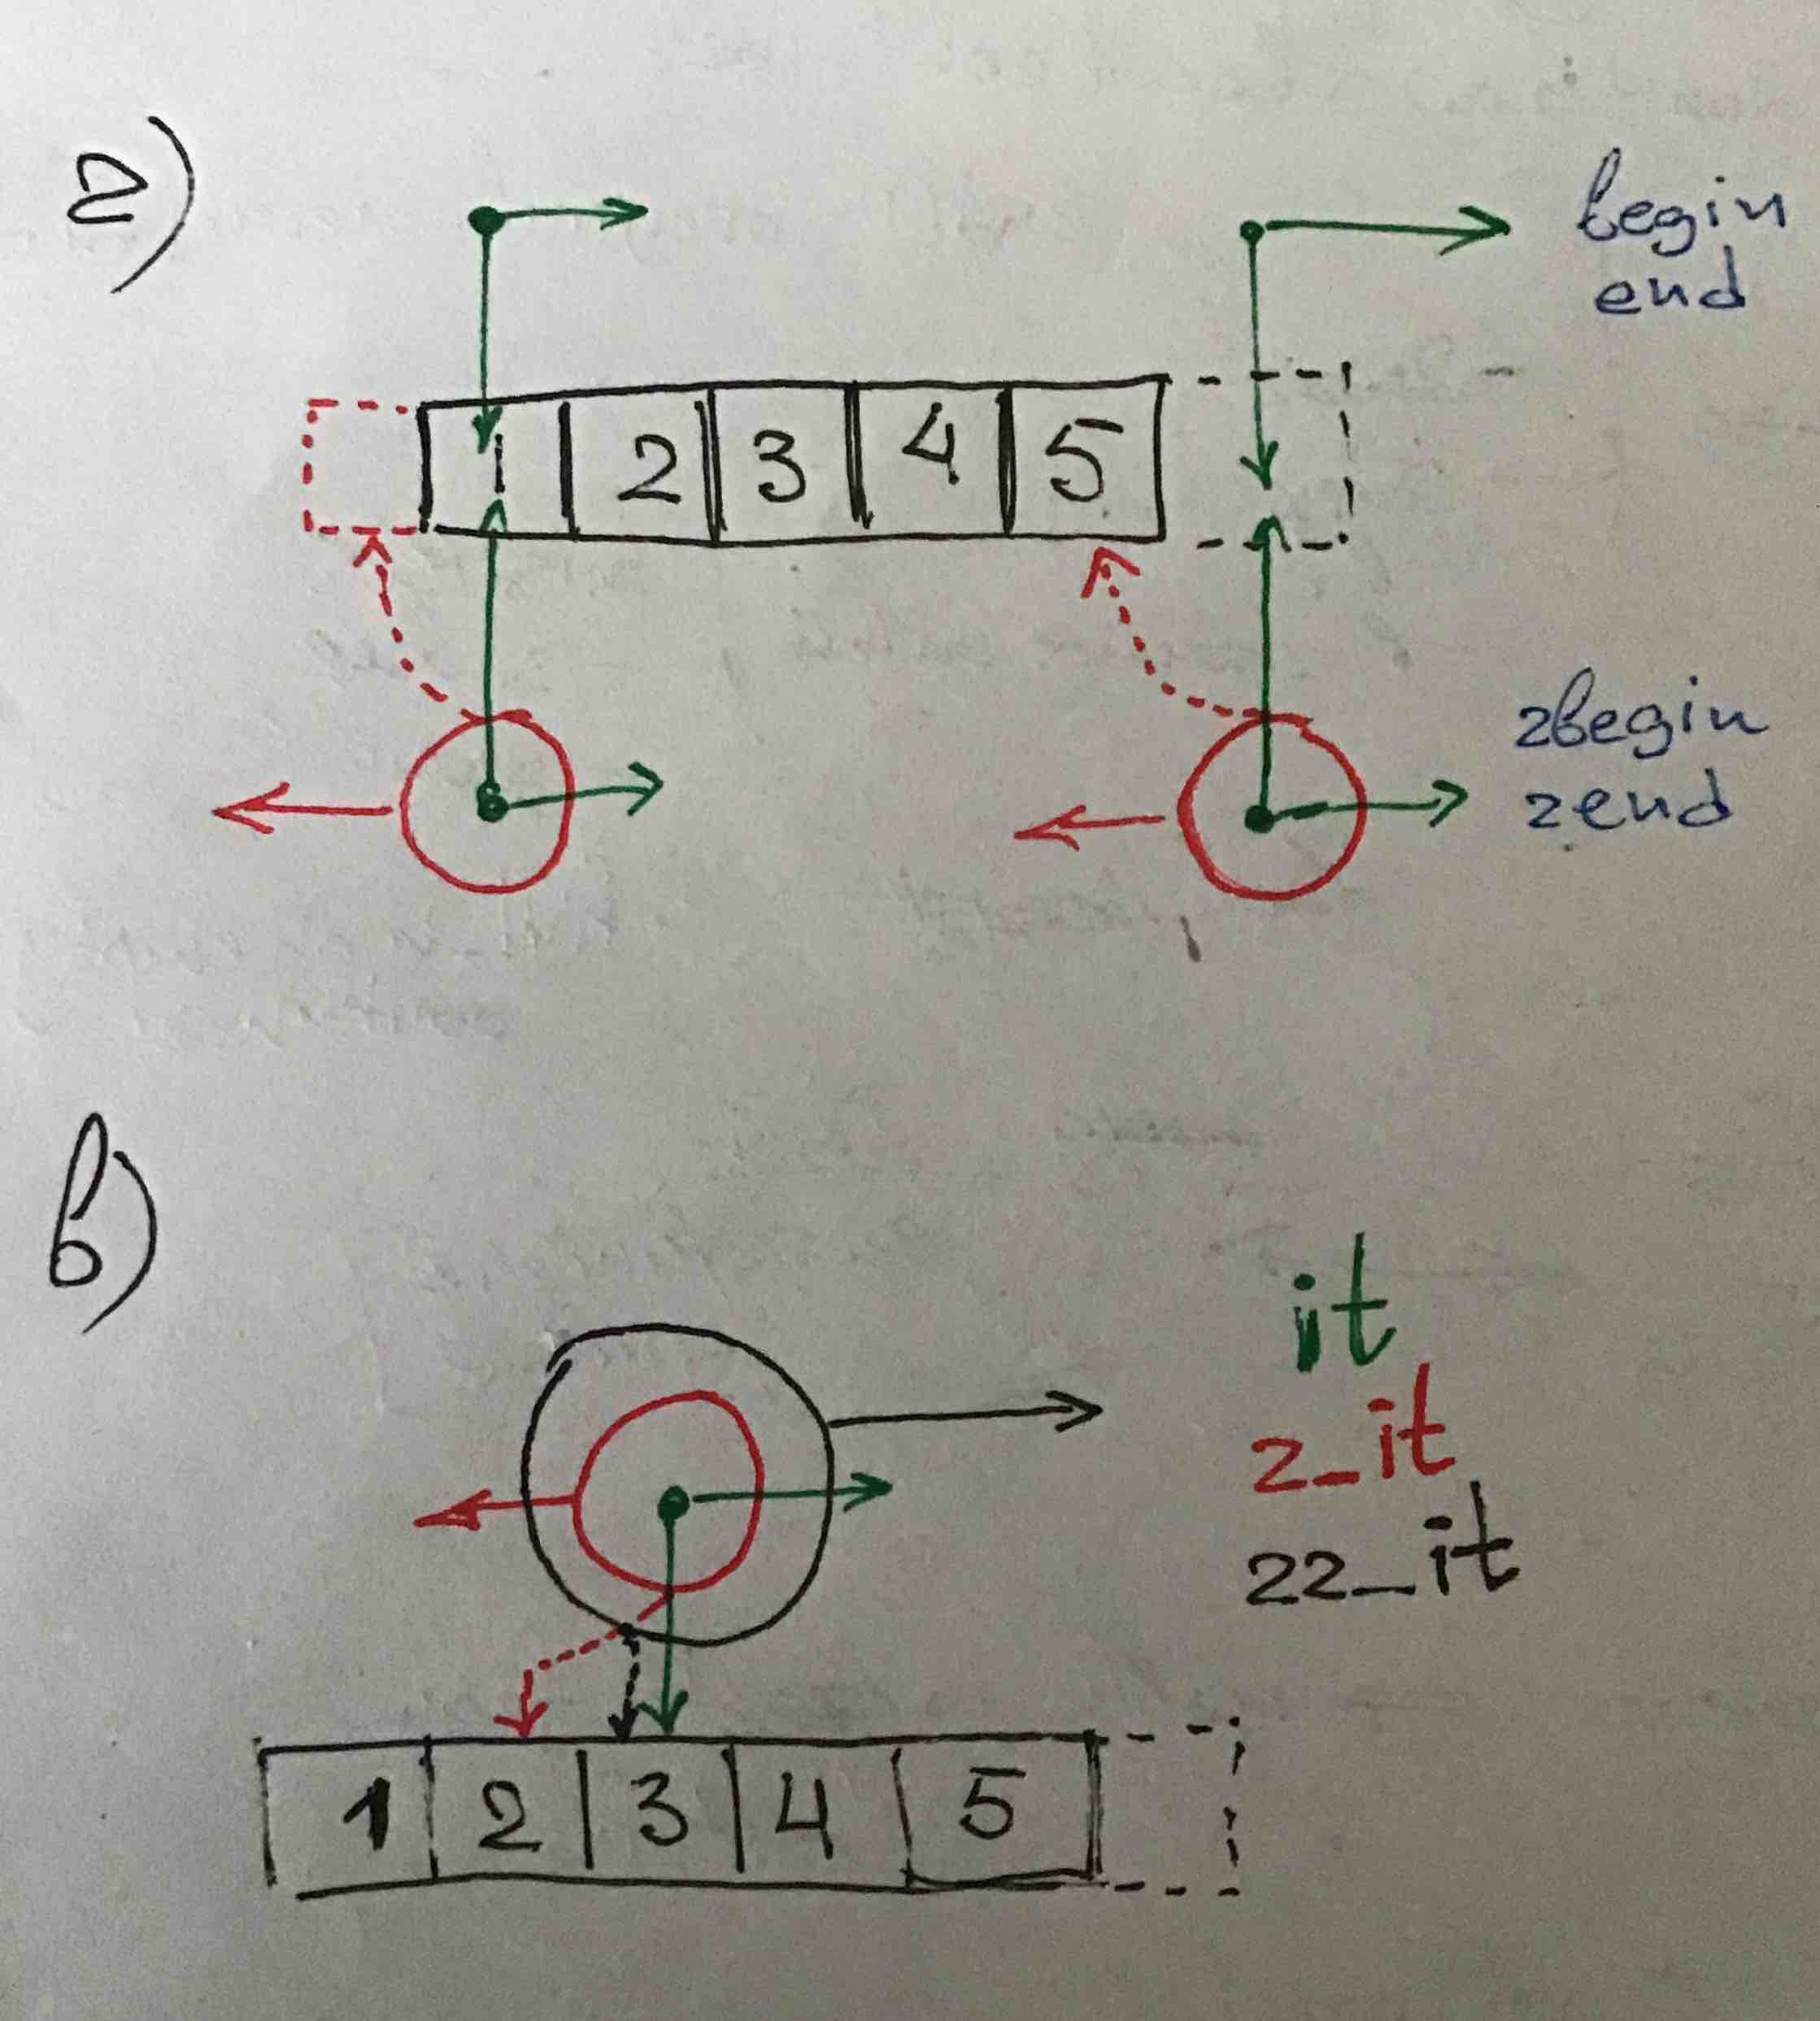 a)
begin
end
1 2 3 4 5
rbegin
rend
b)
it
r_it
rr_it
1 2 3 4 5